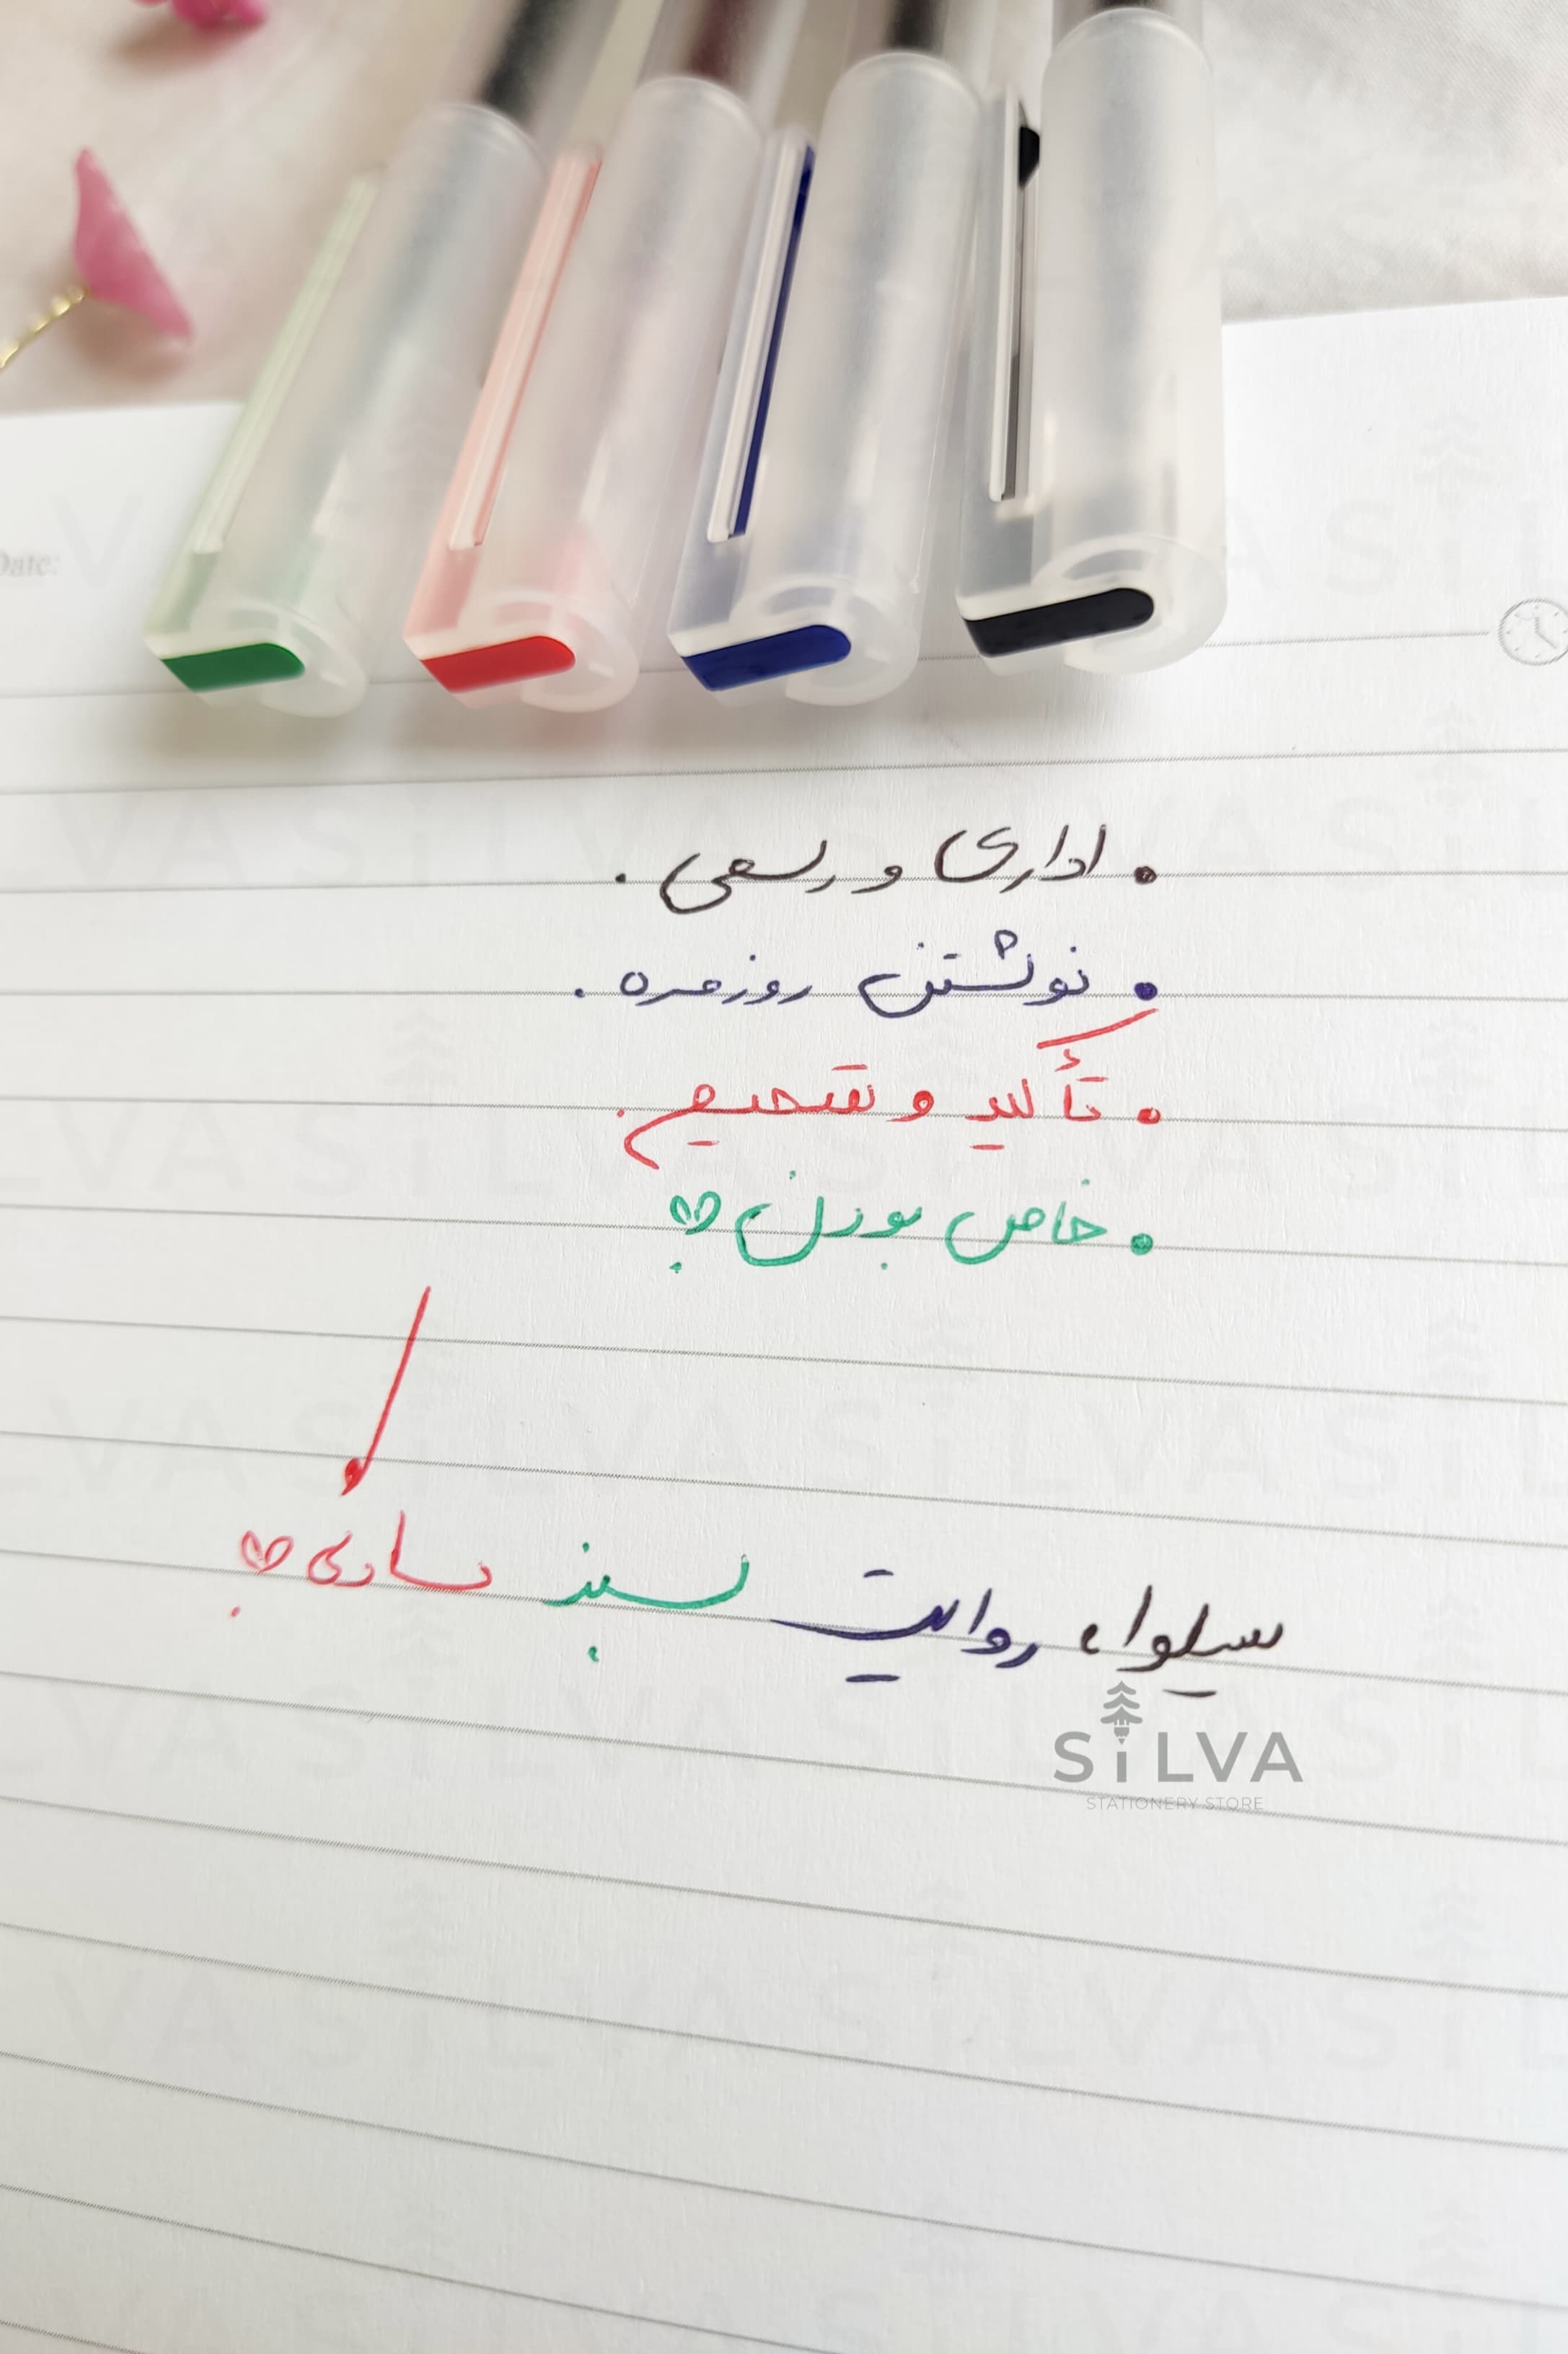 Date:
• اداری و رسمی.
• نوشتن روزمره.
• تأکید و تصحیح.
• خاص بودن♡
سیلوا، روایت سبز سادگی♡
SiLVA
STATIONERY STORE